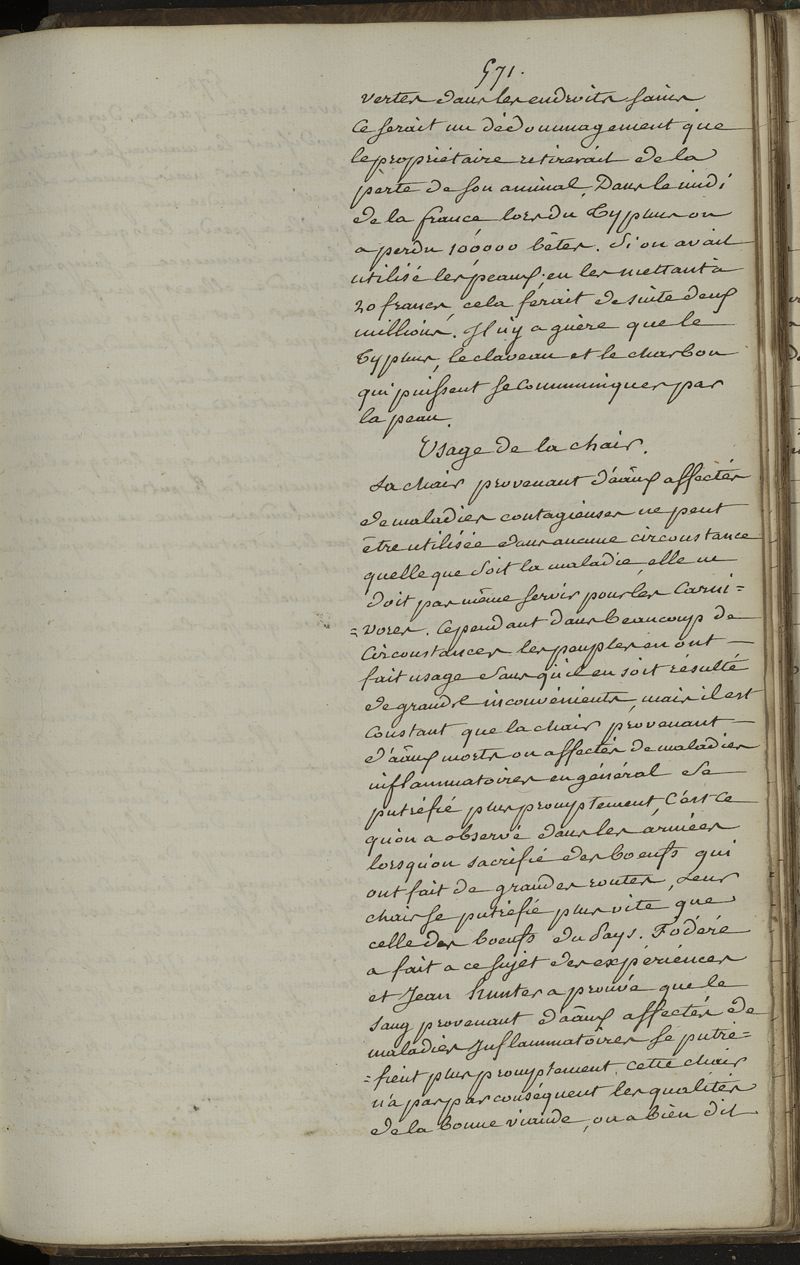 571.
vertes dans les endroits sains.
Ce serait un dédommagement que
le propriétaire retirerait de la
pèrte de son animal. Dans le midi
de la france lors du Typhus on
a perdu 100000 bêtes. Si on avait
utilisé les peaux en les mettant à
20 francs, cela ferait de suite deux
millions. Il n'y a guère que le
Typhus, le claveau et le charbon
qui puissent se communiquer par
la peau.
Usage de la chair.
La chair provenant d'aâux affectés
de maladies contagieuses ne peut
être utilisée dans aucune circonstance
quelle que soit la maladie, elle ne
doit pas même servir pour les Carni=
=vores. Cependant dans beaucoup de
circonstances les peuples en ont
fait usage sans qu'il en soit résulté
de grands inconvénients, mais il est
constant que la chair provenant
d'aâux morts ou affectés de maladies
inflammatoires en général se
putréfié plus promptement, C'est ce
qu'on a observé dans les armées
lorsqu'on sacrifié des boeufs qui
ont fait de grandes routes, Leur
chair se putréfié plus vite que
celle des boeufs du Pays. Fodéré
a fait a ce sujet des expériences
et Jean hunter a prouvé que le
sang provenant d'aâux affectés de
maladies Inflammatoires se putré=
=fient plus promptement. cette chair
n'a pas par conséquent les qualités
de la bonne viande, on a bien dit